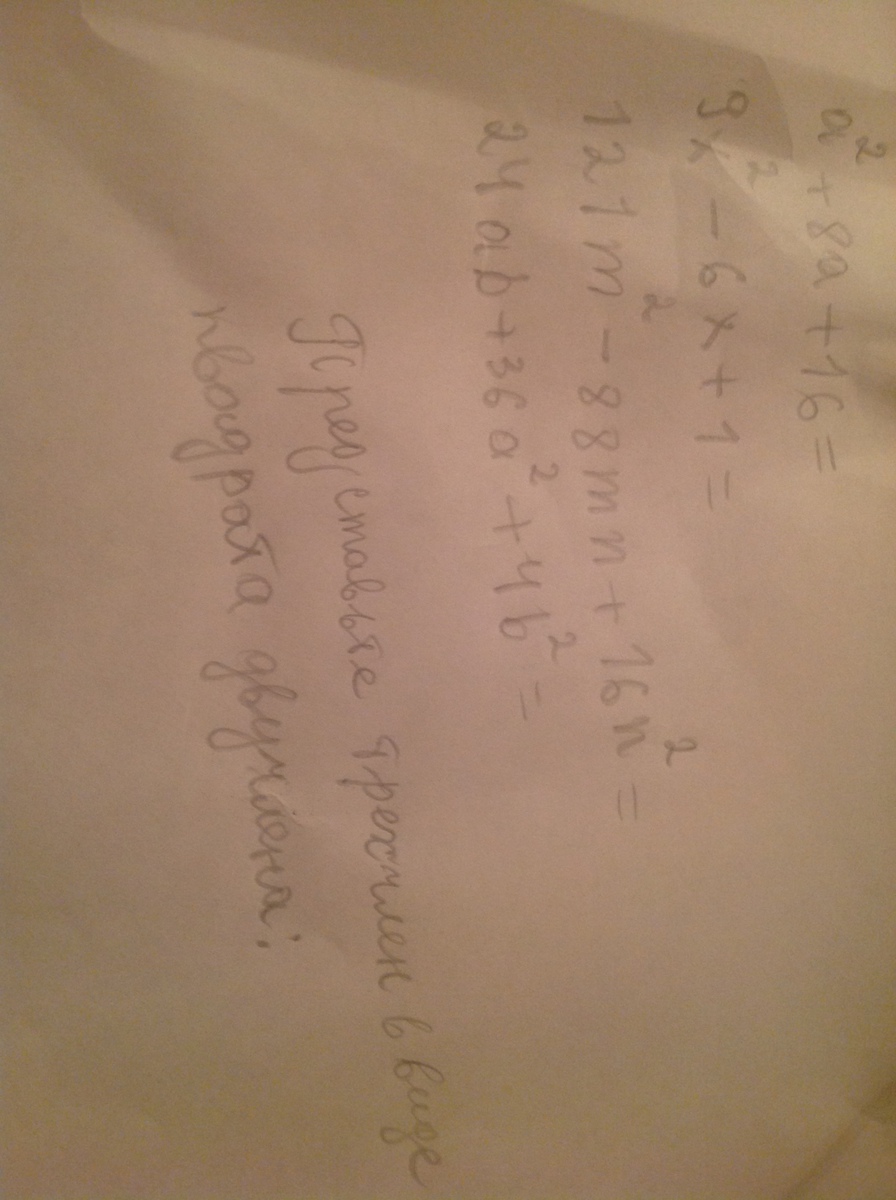 a² + 8a + 16 =
9x² - 6x + 1 =
121m² - 88mn + 16n² =
24ab + 36a² + 4b² =
Представьте трехчлен в виде
квадрата двучлена: